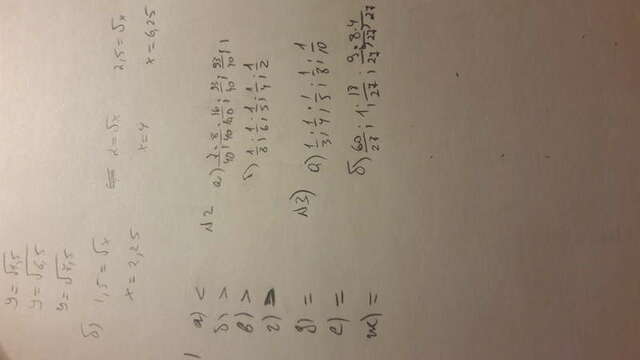 y = √4,5
y = √6,5
y = √7,5
б) 1,5 = √x 2 = √x 2,5 = √x
x = 2,25 x = 4 x = 6,25
а) <
б) >
в) >
г) >
д) =
е) =
ж) =
№2 а) 7/40; 8/40; 16/40; 33/40; 1
б) 1/8; 1/6; 1/5; 1/4; 1/2
№3) а) 1/3; 1/4; 1/5; 1/8; 1/10
б) 60/27; 1; 18/27; 9/27; 8/27; 4/27